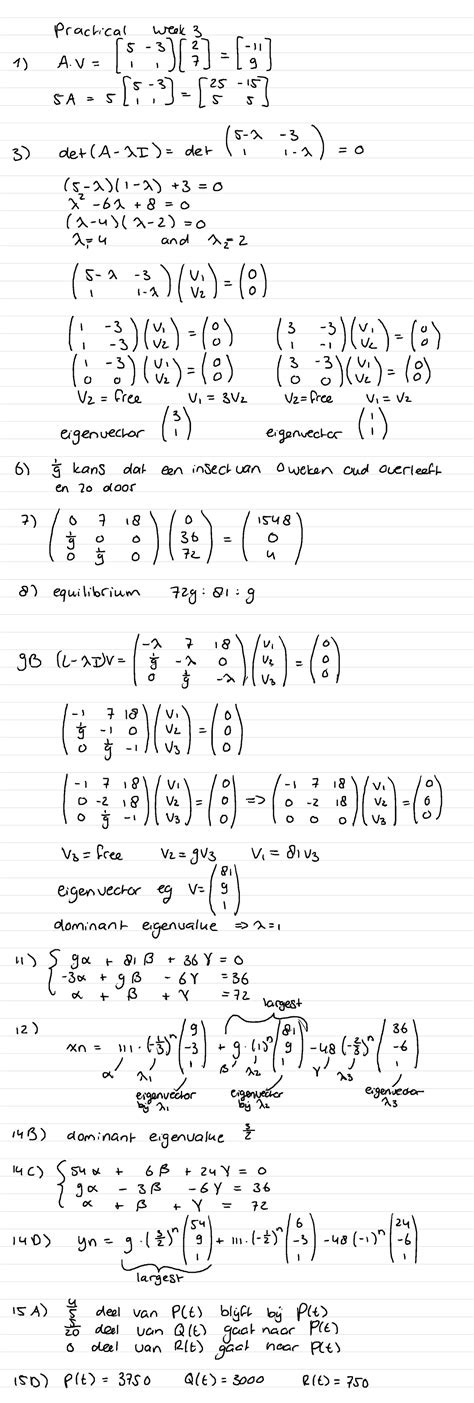 Practical week 3
1) A.V = [5 -3; 1 1] [2; 7] = [-11; 9]
5A = 5 [5 -3; 1 1] = [25 -15; 5 5]
3) det(A-λI) = det (5-λ -3; 1 1-λ) = 0
(5-λ)(1-λ) + 3 = 0
λ² - 6λ + 8 = 0
(λ-4)(λ-2) = 0
λ₁ = 4 and λ₂ = 2
(5-λ -3; 1 1-λ) (V₁; V₂) = (0; 0)
(1 -3; 1 -3) (V₁; V₂) = (0; 0) (3 -3; 1 -1) (V₁; V₂) = (0; 0)
(1 -3; 0 0) (V₁; V₂) = (0; 0) (3 -3; 0 0) (V₁; V₂) = (0; 0)
V₂ = free V₁ = 3V₂ V₂ = free V₁ = V₂
eigenvector (3; 1) eigenvector (1; 1)
6) 1/9 kans dat een insect van 0 weken oud overleeft
en zo door
7) (0 7 18; 1/9 0 0; 0 1/9 0) (0; 36; 72) = (1548; 0; 4)
8) equilibrium 729 : 81 : 9
9B (L-λI)V = (-λ 7 18; 1/9 -λ 0; 0 1/9 -λ) (V₁; V₂; V₃) = (0; 0; 0)
(-1 7 18; 1/9 -1 0; 0 1/9 -1) (V₁; V₂; V₃) = (0; 0; 0)
(-1 7 18; 0 -2 18; 0 1/9 -1) (V₁; V₂; V₃) = (0; 0; 0) => (-1 7 18; 0 -2 18; 0 0 0) (V₁; V₂; V₃) = (0; 0; 0)
V₃ = free V₂ = 9V₃ V₁ = 81V₃
eigenvector eg V = (81; 9; 1)
dominant eigenvalue => λ = 1
11) { 9α + 81β + 36γ = 0
-3α + 9β - 6γ = 36
α + β + γ = 72
largest
12) xn = 111 · (-1/3)ⁿ (9; -3; 1) + 9 · (1)ⁿ (81; 9; 1) - 48 (-2/3)ⁿ (36; -6; 1)
α λ₁ eigenvector bij λ₁ β λ₂ eigenvector bij λ₂ γ λ₃ eigenvector λ₃
14B) dominant eigenvalue 3/2
14C) { 54α + 6β + 24γ = 0
9α - 3β - 6γ = 36
α + β + γ = 72
14D) yn = 9 · (3/2)ⁿ (54; 9; 1) + 111 · (-1/2)ⁿ (6; -3; 1) - 48 (-1)ⁿ (24; -6; 1)
largest
15A) 4/5 deel van P(t) blijft bij P(t)
3/20 deel van Q(t) gaat naar P(t)
0 deel van R(t) gaat naar P(t)
15D) P(t) = 3750 Q(t) = 3000 R(t) = 750